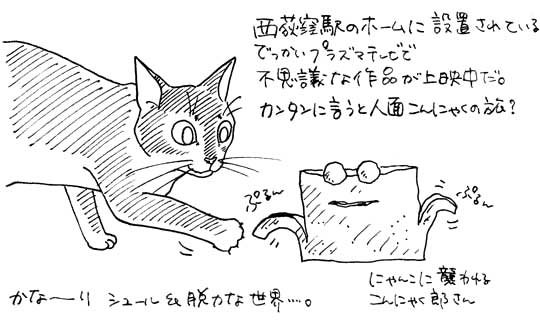 西荻窪駅のホームに設置されている
でっかいプラズマテレビで
不思議な作品が上映中だ。
カンタンに言うと人面こんにゃくの旅?
ぷるん
ぷるん
にゃんこに襲われる
こんにゃく郎さん
かな〜り シュール&脱力な世界….。